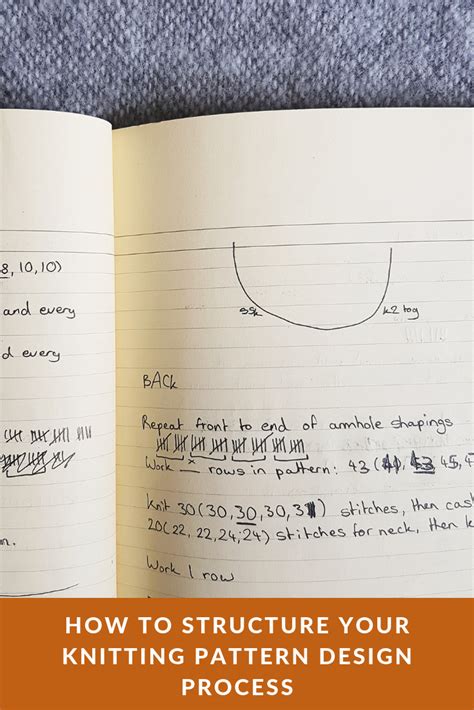 8, 10, 10)
and every
d every
ssk
k2 tog
BACK
Repeat front to end of armhole shapings
Work — rows in pattern: 43 (41, 43 45, 4
Knit 30(30, 30, 30, 31) stitches, then cas
20(22, 22, 24, 24) stitches for neck, then k
n.
Work 1 row
HOW TO STRUCTURE YOUR
KNITTING PATTERN DESIGN
PROCESS